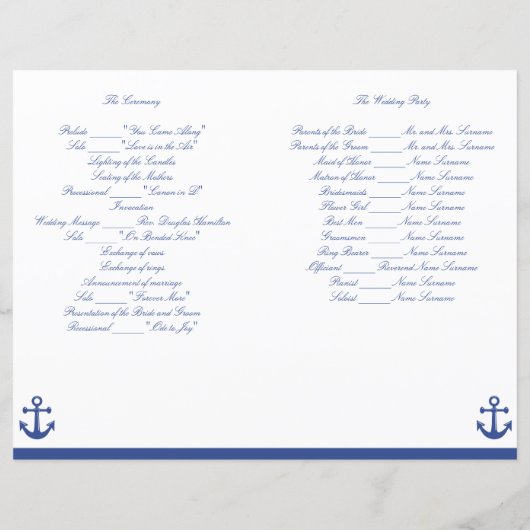 The Ceremony
Prelude ______ "You Came Along"
Solo ______ "Love is in the Air"
Lighting of the Candles
Seating of the Mothers
Precessional _____ "Canon in D"
Invocation
Wedding Message ______ Rev. Douglas Hamilton
Solo ______ "On Bended Knee"
Exchange of vows
Exchange of rings
Announcement of marriage
Solo ______ "Forever More"
Presentation of the Bride and Groom
Recessional ______ "Ode to Joy"
The Wedding Party
Parents of the Bride ______ Mr. and Mrs. Surname
Parents of the Groom ______ Mr. and Mrs. Surname
Maid of Honor ______ Name Surname
Matron of Honor ______ Name Surname
Bridesmaids ______ Name Surname
Flower Girl ______ Name Surname
Best Men ______ Name Surname
Groomsmen ______ Name Surname
Ring Bearer ______ Name Surname
Officiant ______ Reverend Name Surname
Pianist ______ Name Surname
Soloist ______ Name Surname